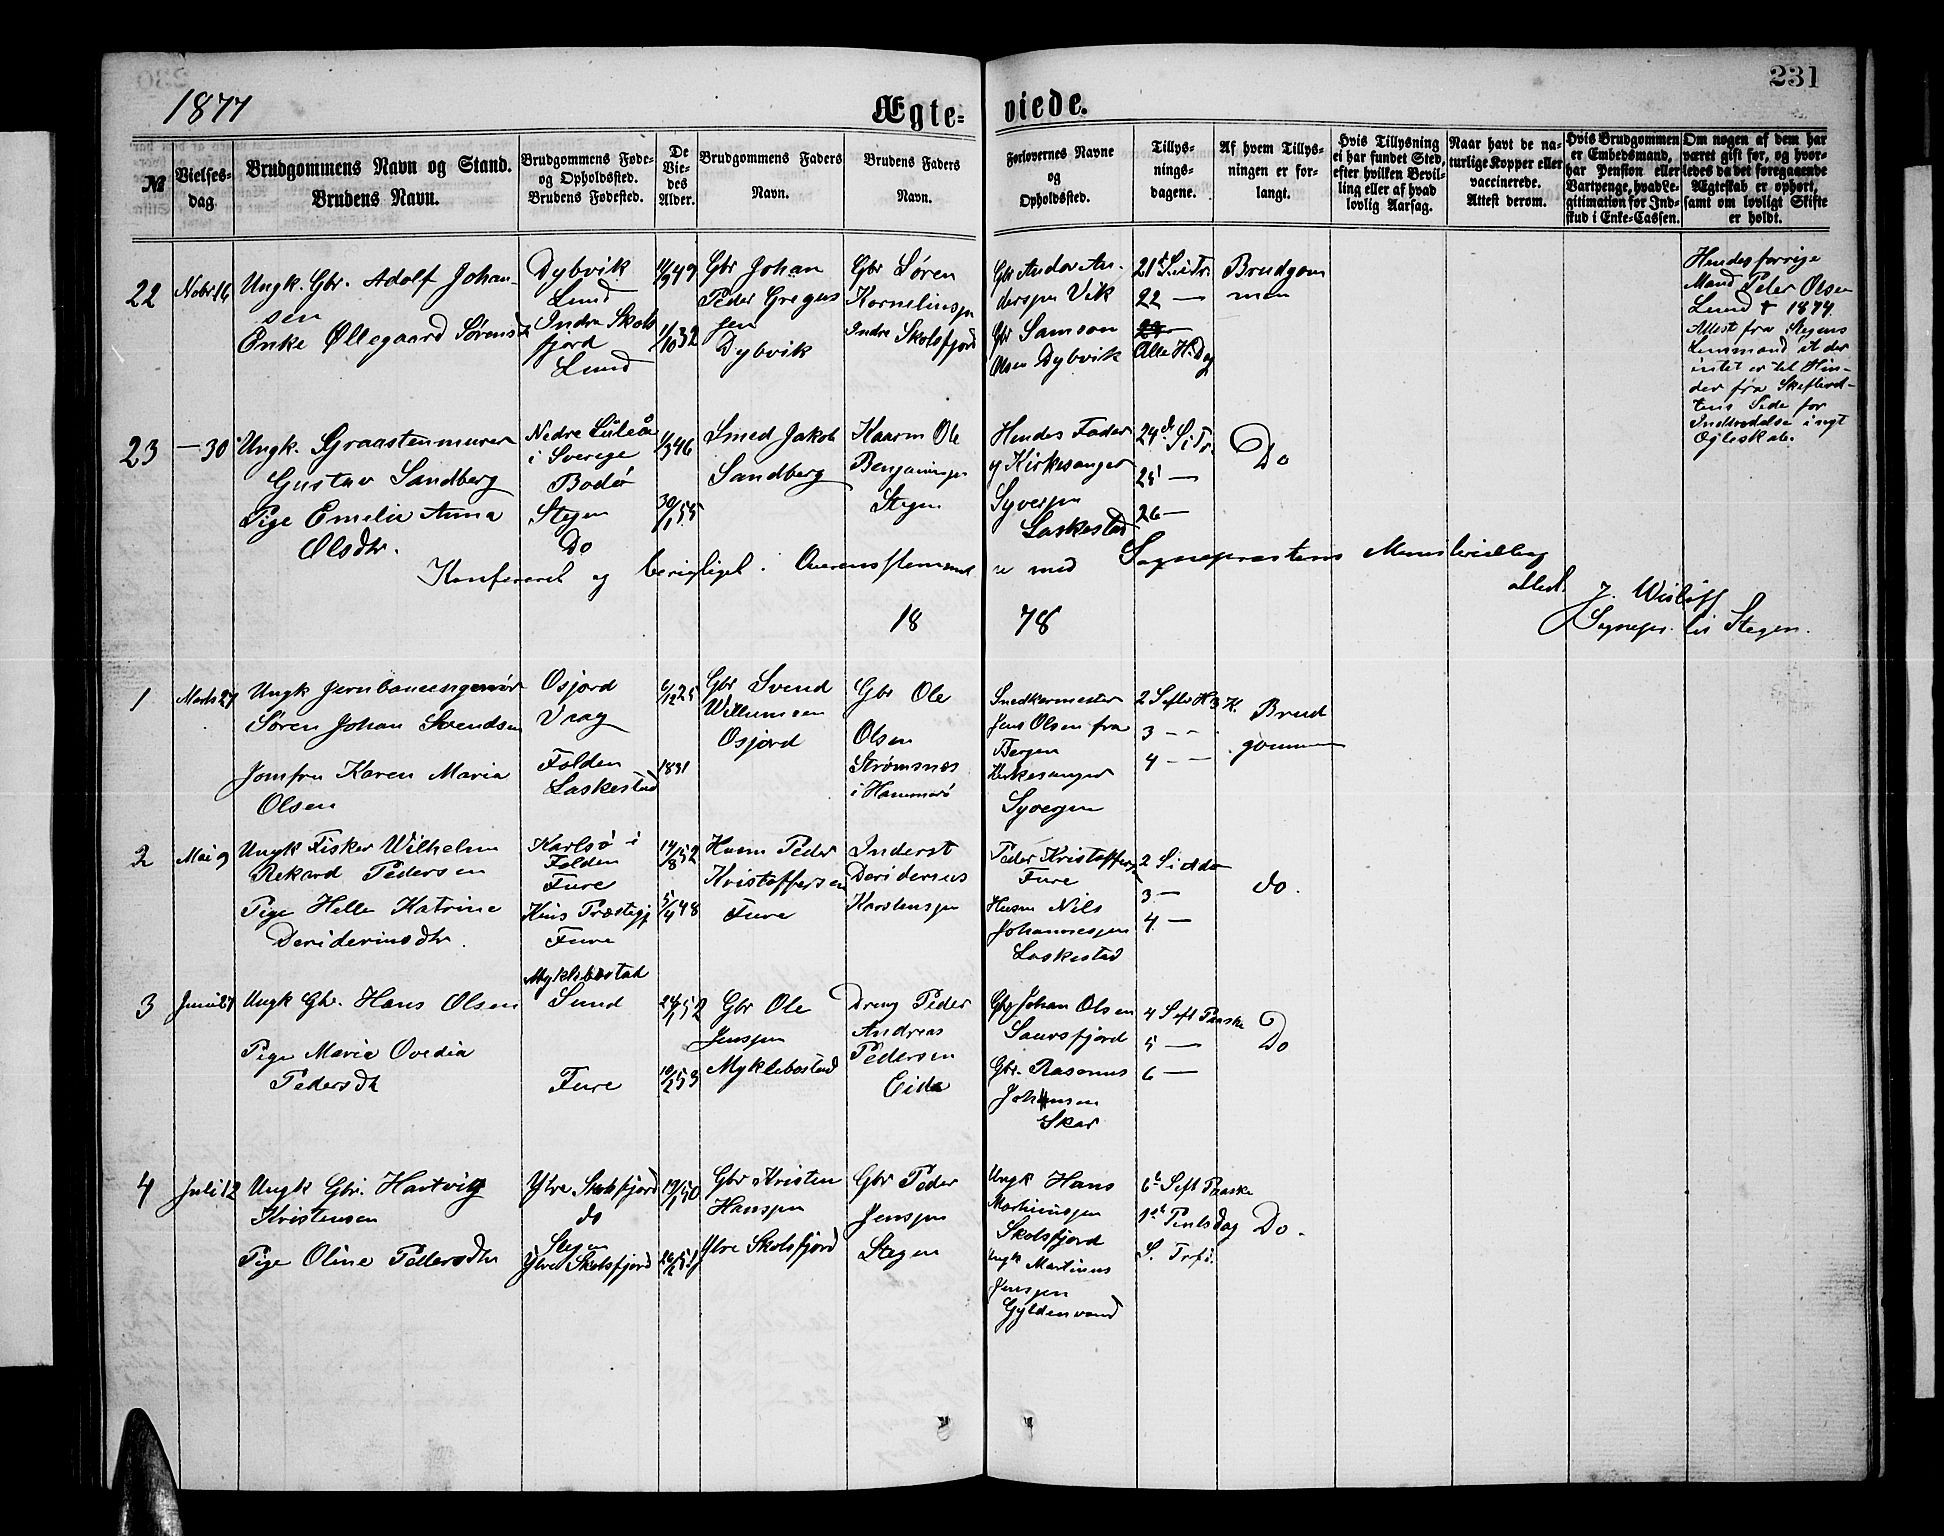 231
1877
Ægte-
viede.
№
Vielses-
dag.
Brudgommens Navn og Stand.
Brudens Navn.
Brudgommens Føde-
og Opholdssted.
Brudens Fødested.
De
Vie-
des
Alder.
Brudgommens Faders
Navn.
Brudens Faders
Navn.
Forlovernes Navne
og
Opholdssted.
Tillys-
nings-
dagene.
Af hvem Tillys-
ningen er for-
langt.
Hvis Tillysning
ei har fundet Sted,
efter hvilken Bevil-
ling eller af hvad
lovlig Aarsag.
Naar havt de na-
turlige Kopper eller
vaccinerede.
Attest derom.
Hvis Brudgommen
er Embedsmand,
har Pension eller
Vartpenge, hvad Le-
gitimation for Ind-
skud i Enke-Cassen.
Om nogen af dem har
været gift før, og hvor-
ledes da det foregaaende
Ægteskab er ophørt,
samt om lovligt Skifte
er holdt.
22
Nobr 16
Ungk. Gbr. Adolf Johan-
sen
Enke Øllegaard Sørensd
Dybvik
Lund
Indre Skols
fjord
Lund
11/9 49
1/10 32
Gbr Johan
Peder Gregus
sen
Dybvik
Gbr Søren
Kornelinssen
Indre Skolsfjord
Gbr Andor An-
derssen Vik
Gbr Samson
Olsen Dybvik
21d S e Tr.
22 —
Alle H. Dag
Brudgom
men
Hendes forrige
Mand Peter Olsen
Lund † 1874.
Attest fra Stegens
Lensmand at der
intet er til Hin-
der fra Skifteret-
tens Side for
Indtrædelse i nyt
Egteskab.
23
— 30
Ungk. Graastenmurer
Gustav Sandberg
Pige Emelie Anna
Olsdtr.
Nedre Luleå
i Sverige
Bodø
Stegen
Do
1/3 46
30/1 55
Smed Jakob
Sandberg
Kaarm Ole
Benjaminssen
Stegen
Hendes Fader
og Kirkesanger
Syversen
Laskestad
24d S e Tr.
25 —
26 —
Do
Konfereret og berigtiget i Overensstemmelse med Sognepræstens Ministerialbog
attest.
J. Wisløff
Sognepr. til Stegen.
18 78
1
Marts 27
Ungk Jernbaneingeniør
Søren Johan Svendsen
Jomfru Karen Maria
Olsen
Osjord
Vrag
Folden
Laskestad
6/12 25
1831
Gbr Svend
Willumsen
Osjord
Gbr Ole
Olsen
Strømsnæs
i Hammerø
Snedkermester
Jens Olsen fra
Bergen
Kirkesanger
Syversen
2 S eft H 3 K.
3 — -
4 — -
Brud
gommen
2
Mai 9
Ungk Fisker Wilhelm
Rekard Pedersen
Pige Helle Katrine
Deriderinsdtr.
Karlsø i
Folden
Fure
Kins Præstegj
Fure
14/8 52
5/4 48
Husm Peder
Kristoffersen
Fure
Inderst
Deridersus
Karstenssen
Peder Kristoffers
Fure
Husm Nils
Johannessen
Laskestad
2 S i do
3 —
4 —
do.
3
Juni 27
Ungk Gbr. Hans Olsen
Pige Maria Ovedia
Pedersdt
Myklebostad
Sund
Fure
24/1 52
10/2 53
Gbr Ole
Jenssen
Myklebostad
Dreng Peder
Andreas
Pedersen
Eide
Gbr Johan Olsen
Laursfjord
Gbr. Rasmus
Johansen
Skar
4 S eft Paaske
5 —
6 —
Do
4
Juli 12
Ungk Gbr. Hartvig
Kristensen
Pige Oline Pedersdtr
Ytre Skolsfjord
do
Stegen
Ytre Skolsfjord
19/1 50
26/2 51
Gbr Kristen
Hanssen
Ytre Skolsfjord
Gbr Peder
Jenssen
Stegen
Ungk Hans
Martinussen
Skolsfjord
Ungk Martinus
Jenssen
Gyldenvand
6d S eft Paaske
1st Pintsdag
S. Tref.
Do.